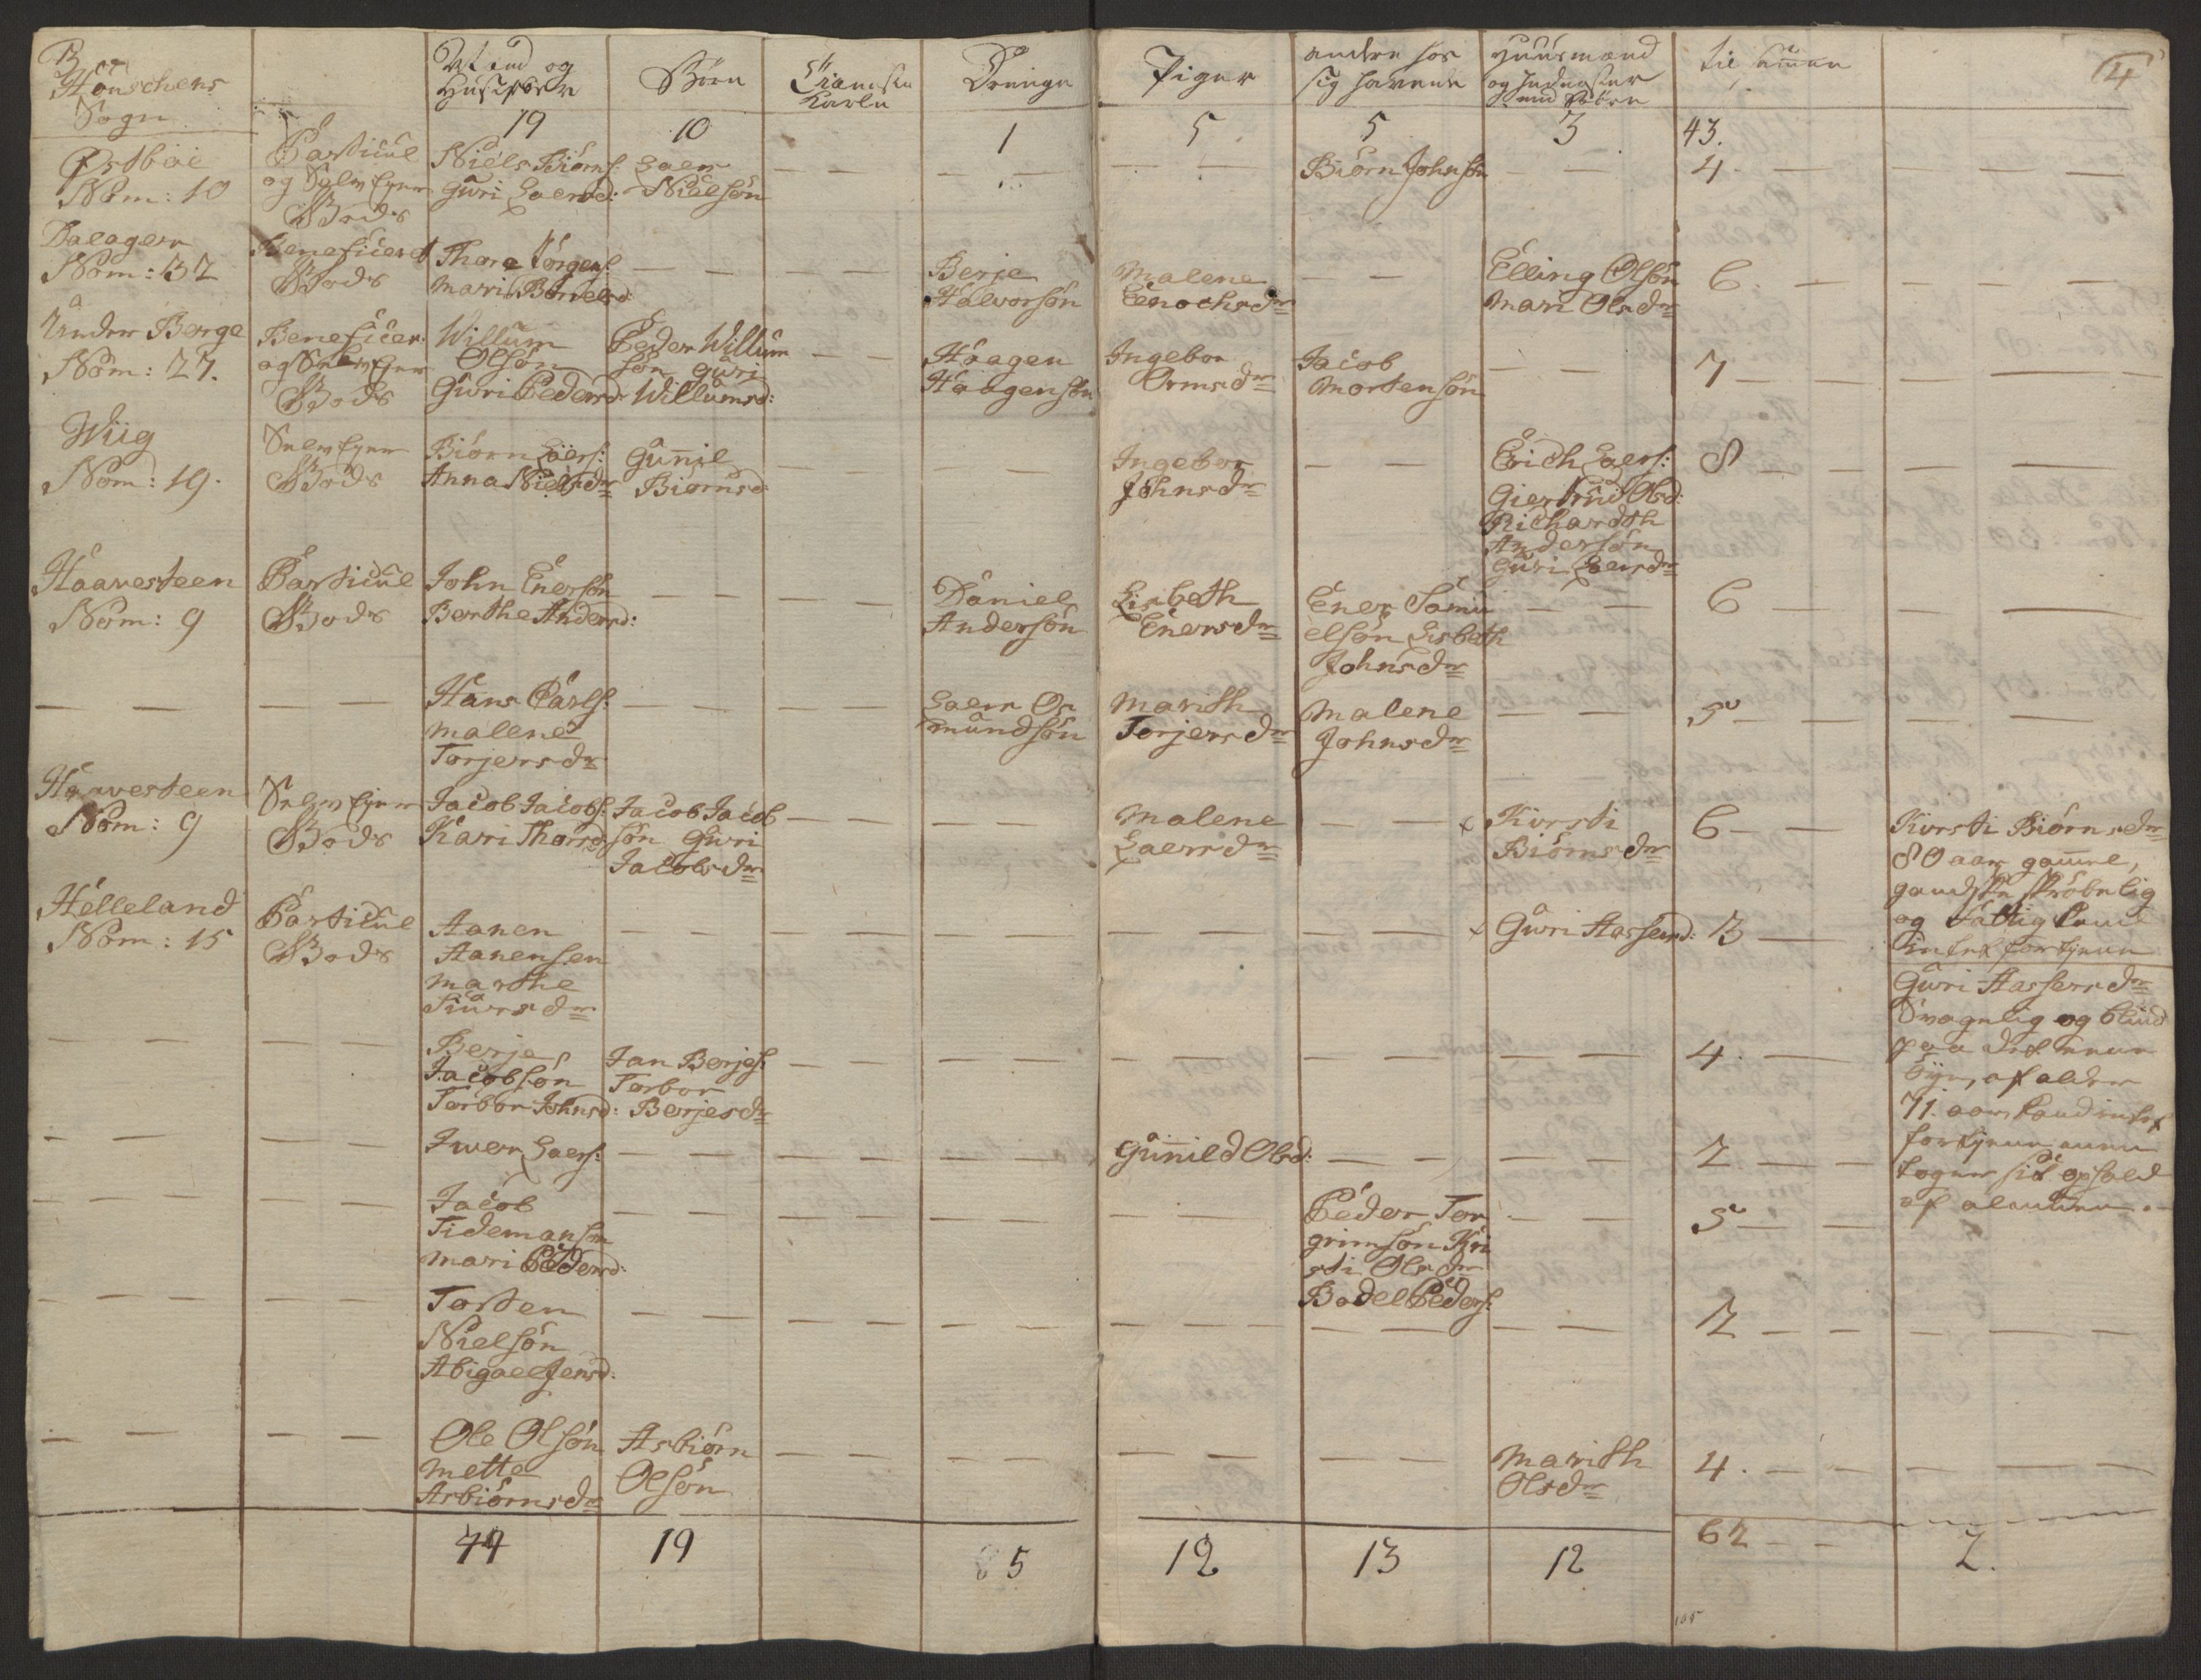 Hönschens
Sogn
Mænd og
Hustroer
Börn
Tienste
Karle
Drenge
Piger
andre hos
sig havende
Huusmænd
og Inderster
med Börn
til samen
4
19
10
1
5
5
3
43.
Østböe
Nom: 10
Particul
og Selv Ejer
Gods
Niels Biörns:
Guri Laersd:
Laers
Nielsön
Biörn Johnsön
4
Dalager
Nom: 32
Beneficeret
Gods
Thore Törgens:
Mari Börrelsd:
Berje
Halvorsön
Malene
Enochsdr
Elling Olsön
Mari Olsdr
6.
Under Berge
Nom: 27.
Beneficer:
og Selv Ejer
Gods
Willum
Olsön
Guri Pedersd:
Peder Willum
sön Guri
Willumsd:
Haagen
Haagensön
Ingebor
Ormsdr
Jacob
Mortensön
7
Wiig
Nom: 19.
Selv Ejer
Gods
Biörn Laers:
Anna Nielsdr
Gunnil
Biörnsd:
Ingebor
Johnsdr
Erich Laers:
Giertrud Olsd:
Richardth
Andersön
Guri Laersdr
8
Haavesteen
Nom: 9
Particul
Gods
John Enersön
Berthe Andersd:
Daniel
Andersön
Lisbeth
Enersdr
Ener Samu
elsön Lisbeth
Johnsdr
6
Hans Carls:
Malene
Torjersdr
Laers Os
mundsön
Marith
Torjersdr
Malene
Johnsdr
5
Haavesteen
Nom: 9
Selv Ejer
Gods
Jacob Jacobs:
Kari Thorsd
Jacob Jacob
sön Guri
Jacobsdr
Malene
Laersdr
Kirsti
Biörnsdr
6
Kirsti Biörnsdr
80 aar gammel,
gandske skröbelig
og fattig kand
intet fortjene
Helleland
Nom: 15
Particul
Gods
Aanen
Aanensen
Marthe
Siursdr
Guri Assersd:
3
Guri Assersdr
Svagelig og blind
paa det eene
Öye, af alder
71. aar, kand intet
fortjene men
söger sit ophold
af almisse.
Berje
Jacobsön
Torbor Johnsd:
Jan Berjes:
Torbor
Berjesdr
4.
Iwer Laers:
Gunnild Olsd:
2
Jacob
Tidemansön
Mari Pedersd:
Peder Tor
grimsön Kri
sti Olsdr
Bodel Peders:
5
Torsten
Nielsön
Abigael Jensd:
2
Ole Olsön
Mette
Asbiörnsdr
Asbiörn
Olsön
Marith
Olsdr
4.
44
19
5
12
13
12
62
2.
105